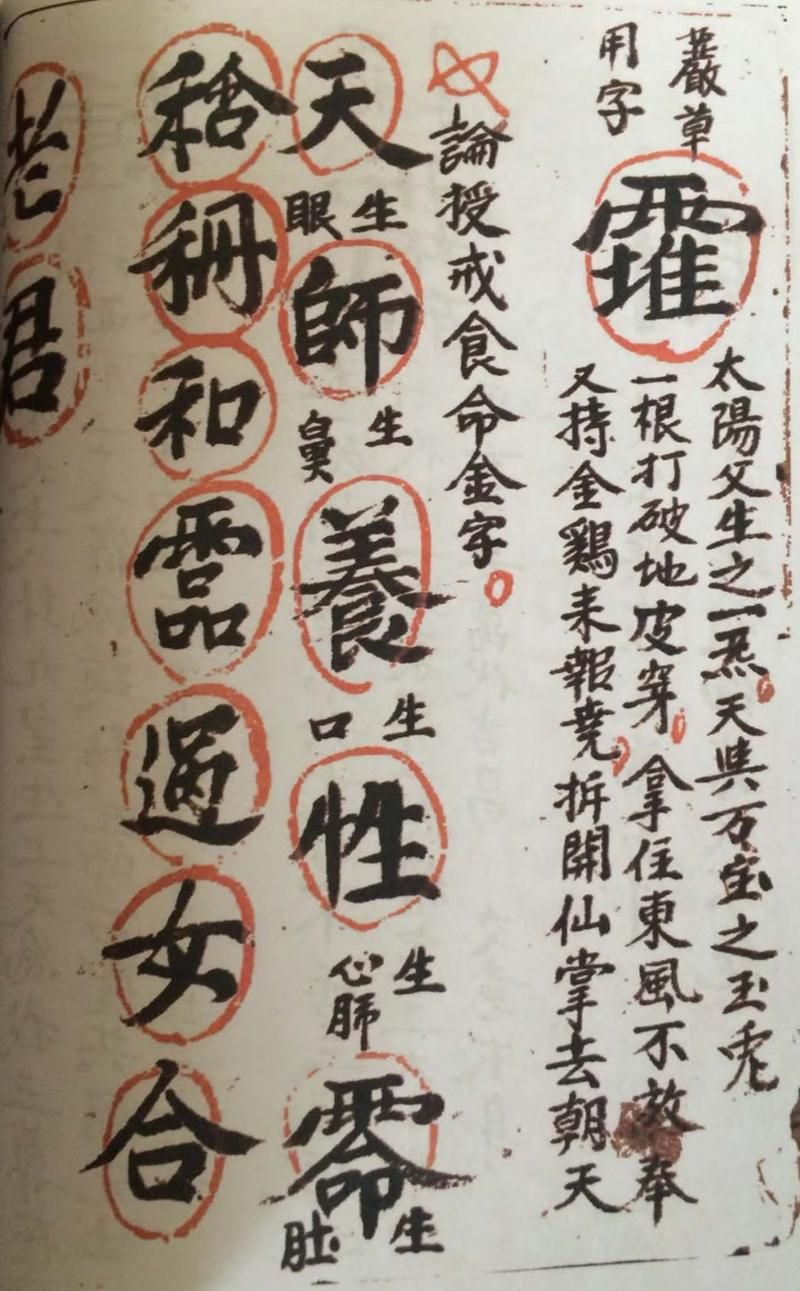 嚴草
用字
太陽父生之一炁天與万宝之玉兎
一根打破地皮穿拿住東風不放奉
又持金鷄来報堯拆開仙掌去朝天
論授戒食命金字
天
生眼
師
生鼻
養
生口
性
生心肺
生肚
和
過
女
合
老君